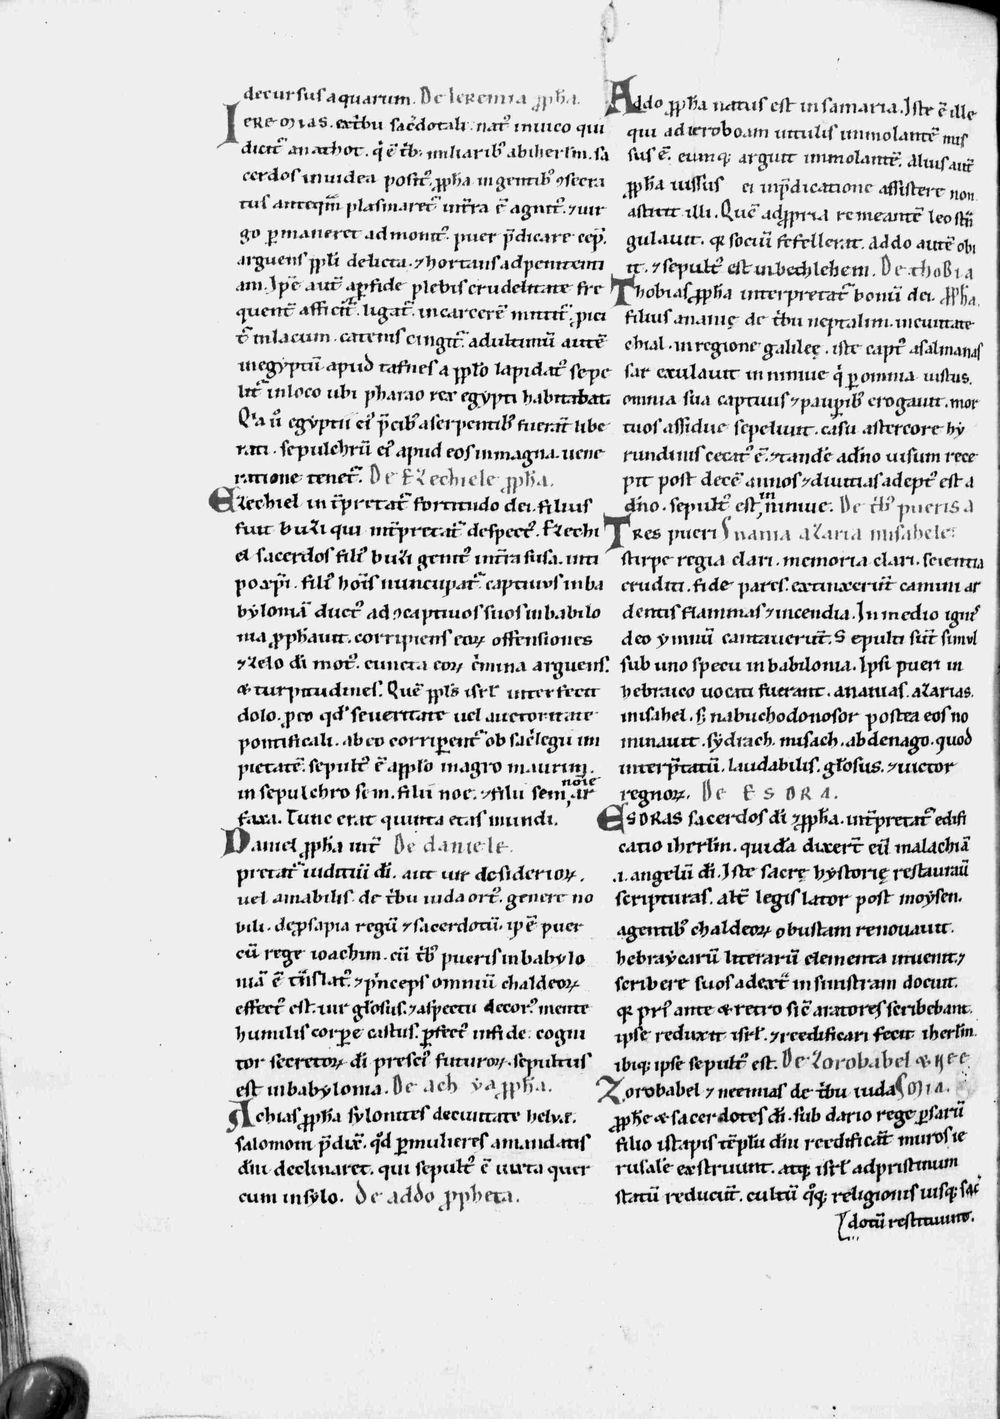 decursus aquarum. De Ieremia ꝓph̅a.
IEREMIAS. ex t̅bu sac̅dotali. nat᷒ in uico qui
dicit᷑ anathot. q̇ ē t̅b᷒. miliarib᷒ ab iherl̅m. sa
cerdos in iudea posit᷒. ꝓph̅a in gentib᷒ ꝯsecra
tus anteqͣm plasmaret᷑ in ut̅ra ē agnit᷒. ⁊ uir
go ꝑmaneret admonit᷒. puer p̅dicare cep̅.
arguens ppl̅i delicta. ⁊ hortans ad penitenti
am. Ip̅e aut̅ a ꝑfide plebis crudelitate fre
quent̅ afficit᷑. ligat᷑. in carcere̅ mittit᷑. ꝓici
t᷑ in lacum. catenis cingit᷑. ad ultimu̅ aute̅
in egyptu̅ apud tafnes a ppl̅o lapidat᷒. sepe
lit᷑ in loco ubi pharao rex egypti habitabat.
Q̇a u̇ egyptii ei᷒ p̅cib᷒ a serpentib᷒ fuerant̅ libe
rati. sepulchru̅ ei᷒ apud eos in magna uene
ratione tenet᷑. De Ezechiele ꝓph̅a.
Ezechiel in t̅pretat᷑ fortitudo dei. filius
fuit buzi qui int̅pretat᷑ despect᷒. Ezechi
el sacerdos fili᷒ buzi genit᷒ in t̅ra fusa. in ti
po xp̅i. fili᷒ ho̅is nuncupat᷑. captiuus in ba
bylonia̅ duct᷒ ad ꝯcaptiuos suos in babilo
nia ꝓphauit. corripiens eoꝝ offensiones
⁊ zelo di̅ mot᷒. cuncta eoꝝ c̅mina arguens.
& turpitudines. Que̅ ppl̅s isrl̅ interfecit
dolo. ꝓ eo qd̅ seueritate uel auctoritate
pontificali. ab eo corriperent᷑ ob sac̅legii im
pietate̅. sepult᷒ ē a ppl̅o in agro maurim.
in sepulchro sem. filii noe. ⁊ filii sem noie ar
faxa. Tunc erat quinta etas mundi.
Daniel ꝓph̅a int̅ De daniele.
pretat᷑ iuditiu̅ di̅. aut uir desiderioꝝ.
uel amabilis. de t̅bu iuda ort᷒. genere no
bili. de ꝓsapia regu̅ ⁊ sacerdotu̅. ip̅e puer
cu̅ rege ioachim. cu̅ t̅b᷒ pueris in babylo
nia̅ ē t̅nslat᷒. ⁊ p̅nceps omniu̅ chaldeoꝝ
effect᷒ est. uir gl̅osus. ⁊ aspectu decor᷒. mente
humilis corꝑe castus. ꝑfect᷒ in fide. cogni
tor secretoꝝ di̅ presci᷒ futuroꝝ. sepultus
est in babylonia. De achya ꝓph̅a.
Achias ꝓph̅a sylonites de ciuitate helyę.
salomoni p̅dix̅. qd̅ ꝑ mulieres a mandatis
dn̅i declinaret. qui sepult᷒ ē iuxta quer
cum in sylo. De addo ꝓpheta.
Addo ꝓph̅a natus est in samaria. Iste ē ille
qui ad ieroboam uitulis immolante̅ mis
sus ē. eumq; arguit immolante̅. Alius aut̅
ꝓph̅a iussus ei in p̅dicatione assistere non
astitit illi. Que̅ ad ꝓpria remeante̅ leo st̅n
gulauit. qr̅ sociu̅ fefellerat. addo aute̅ obi
it. ⁊ sepult᷒ est in bechlehem. De thobia
Thobias ꝓph̅a interpretat᷑ bonu̅ dei. ꝓph̅a.
filius ananię de t̅bu neptalim. in ciuitate
chial. in regione galileę. iste capt᷒ a salmanas
sar exulauit in niniue q̇ ꝑ omnia iustus.
omnia sua captiuis ⁊ pauꝑib᷒ erogauit. mor
tuos assidue sepeliuit. casu a stercore hy
rundinis cecat᷒ ē. ⁊ tande̅ a dn̅o uisum rece
pit post dece̅ annos ⁊ diuitias adept᷒ est a
dn̅o. sepult᷒ est in niniue. De t̅b᷒ pueris a
Tres pueri Snania azaria misahele:
stirpe regia clari. memoria clari. scientia
eruditi. fide pares. extinxeru̅t camini ar
dentis flammas ⁊ incendia. In medio ignis
deo ymnu̅ cantaueru̅t. Sepulti su̅t simul
sub uno specu in babilonia. Ipsi pueri in
hebraico uociti fuerant. ananias. azarias.
misahel. s; nabuchodonosor postea eos no
minauit. sydrach. misach. abdenago. quod
interp̅tatu̅. laudabilis. gl̅osus. ⁊ uictor
regnoꝝ. De ESDRA.
ESDRAS sacerdos di̅ ⁊ ꝓph̅a. int̅pretat᷑ edifi
catio iherl̅m. quida̅ dixer̅t eu̅ malachia̅
.i. angelu̅ di̅. Iste sacrę hystorię restauraů
scripturas. alt̅ legis lator post moysen.
a gentib᷒ chaldeoꝝ obustam renouauit.
hebraycaru̅ literaru̅ elementa inuenit ⁊
scribere suos a dext̅ in sinistram docuit.
qr̅ pri᷒ ante & retro sic̅ aratores scribebant.
ipse reduxit isrl̅. ⁊ reedificari fecit iherl̅m.
ibiq; ipse sepult᷒ est. De Zorobabel & nee
Zorobabel ⁊ neemias de t̅bu iuda Smia.
ꝓphe & sacerdotes di̅. sub dario rege ꝑsaru̅
filio istapis te̅plu̅ dn̅i reedificar̅t muros ie
rusale̅ exstruunt. atq; isrl̅ ad pristinum
statu̅ reducu̅t. cultu̅ q̊q; religionis uisq; sac̅
dotu̅ restituunt.